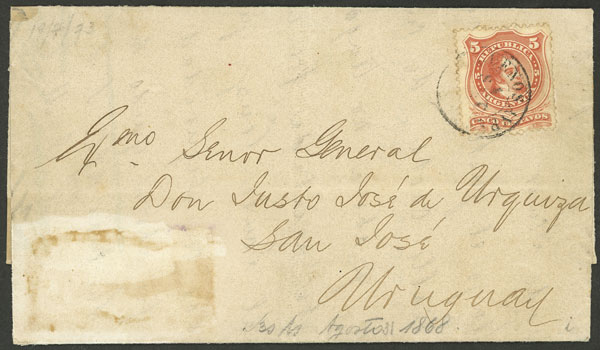 19/7/93
5 REPUBLICA 5
ARGENTINA
CINCO CENTAVOS
Exmo Senor General
Don Justo José de Urquiza
San José
Uruguay
Agosto 1868